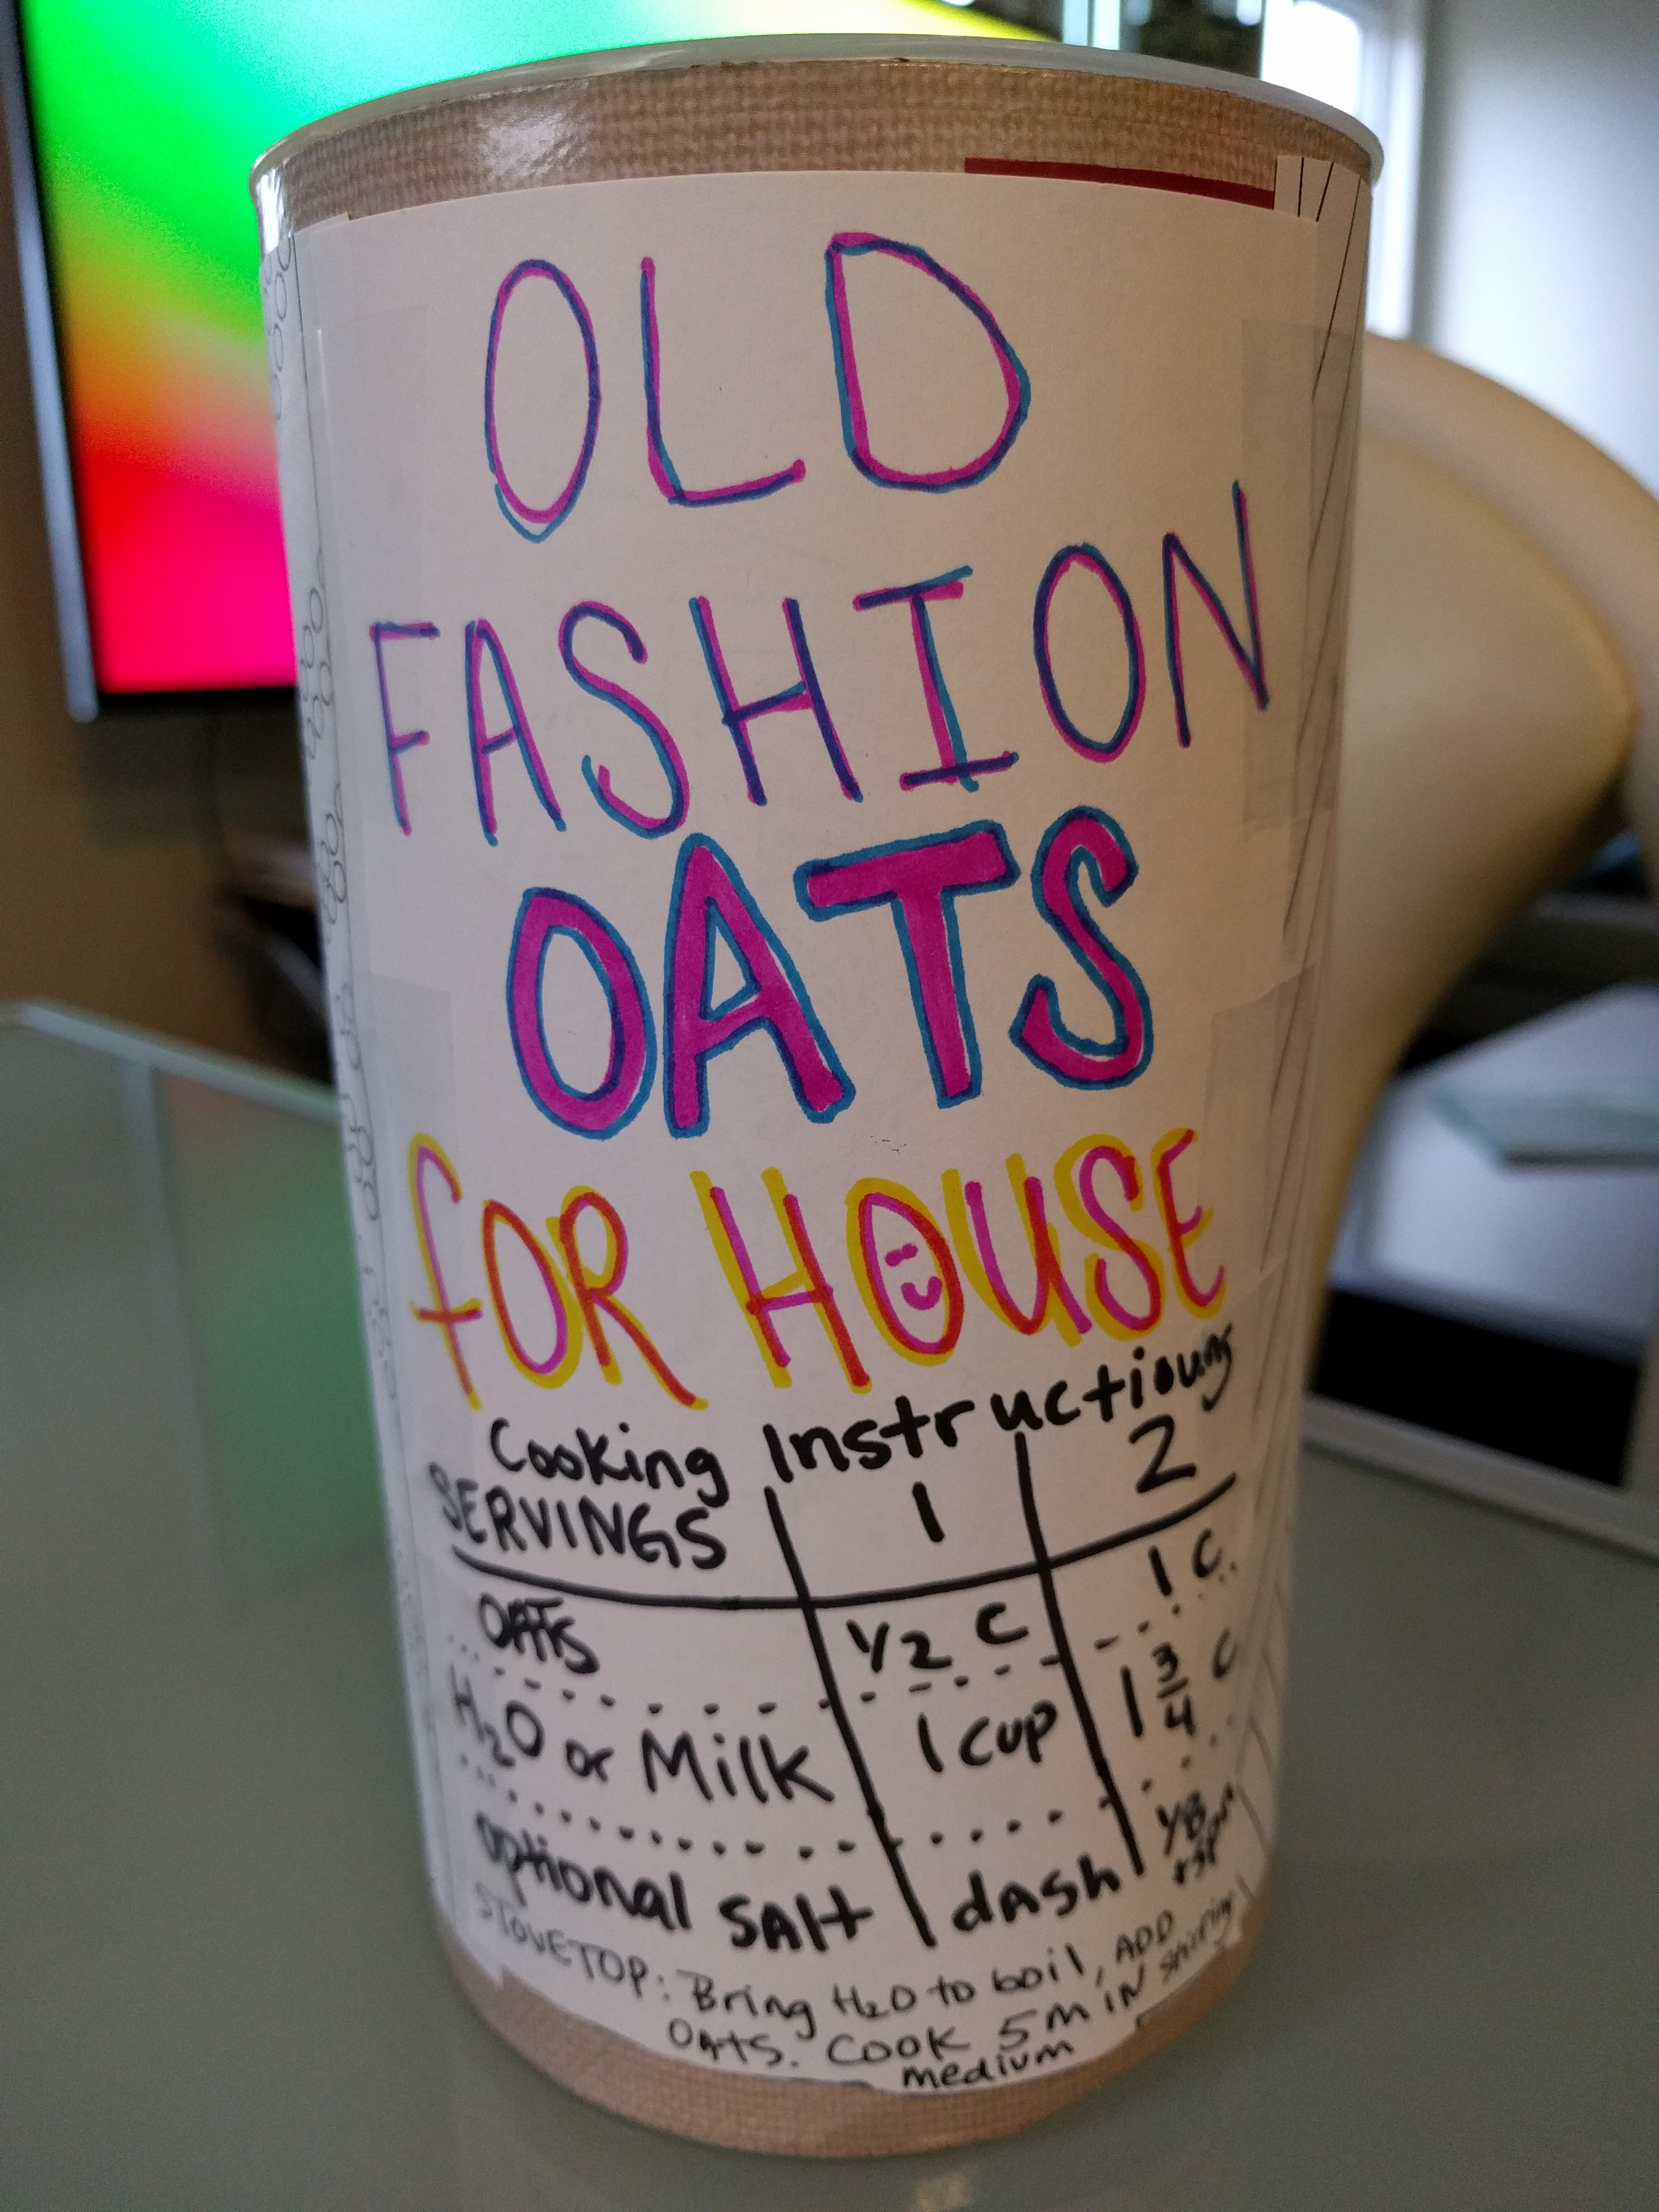 OLD
FASHION
OATS
fOR HOUSE
Cooking Instructiouns
SERVINGS 1 2
OATS 1/2 C 1 C
H2O or Milk 1 cup 1 3/4 C
optional SAlt dAsh 1/8 tspn
STOVETOP: Bring H2O to boil, ADD
OAtS. COOK 5 MIN stirring
medium